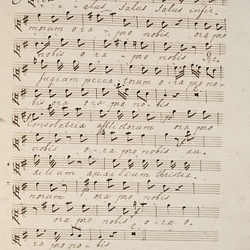 alus, Salus Salus infir=
morum ora pro nobis ora pro
nobis o ra pro nobis Re
fugium peccatorum ora pro no
bis ora ora pro nobis
Consolatrix afflictorum ora pro
nobis o ra pro nobis au
xilium auxilium Christia
norum ora pro nobis
ora pro nobis o ra o
ra pro nobis